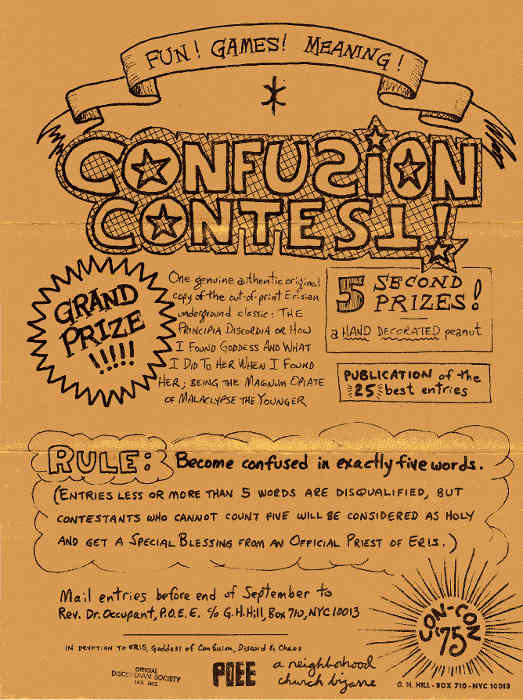 FUN! GAMES! MEANING!
CONFUSION
CONTEST!
GRAND
PRIZE
!!!!!
One genuine authentic original
copy of the out-of-print Erisian
underground classic: THE
PRINCIPIA DISCORDIA OR HOW
I FOUND GODDESS AND WHAT
I DID TO HER WHEN I FOUND
HER; BEING THE MAGNUM OPIATE
OF MALACLYPSE THE YOUNGER
5 SECOND
PRIZES!
a HAND DECORATED peanut
PUBLICATION of the
25 best entries
RULE: Become confused in exactly five words.
(ENTRIES LESS OR MORE THAN 5 WORDS ARE DISQUALIFIED, BUT
CONTESTANTS WHO CANNOT COUNT FIVE WILL BE CONSIDERED AS HOLY
AND GET A SPECIAL BLESSING FROM AN OFFICIAL PRIEST OF ERIS.)
Mail entries before end of September to
Rev. Dr. Occupant, P.O.E.E. c/o G.H.Hill, Box 710, NYC 10013
CON-CON
'75
IN DEVOTION TO ERIS, Goddess of Confusion, Discord & Chaos
OFFICIAL
DISCORDIAN SOCIETY
POEE
a neighborhood
church bizarre
G. H. HILL - BOX 710 - NYC 10013